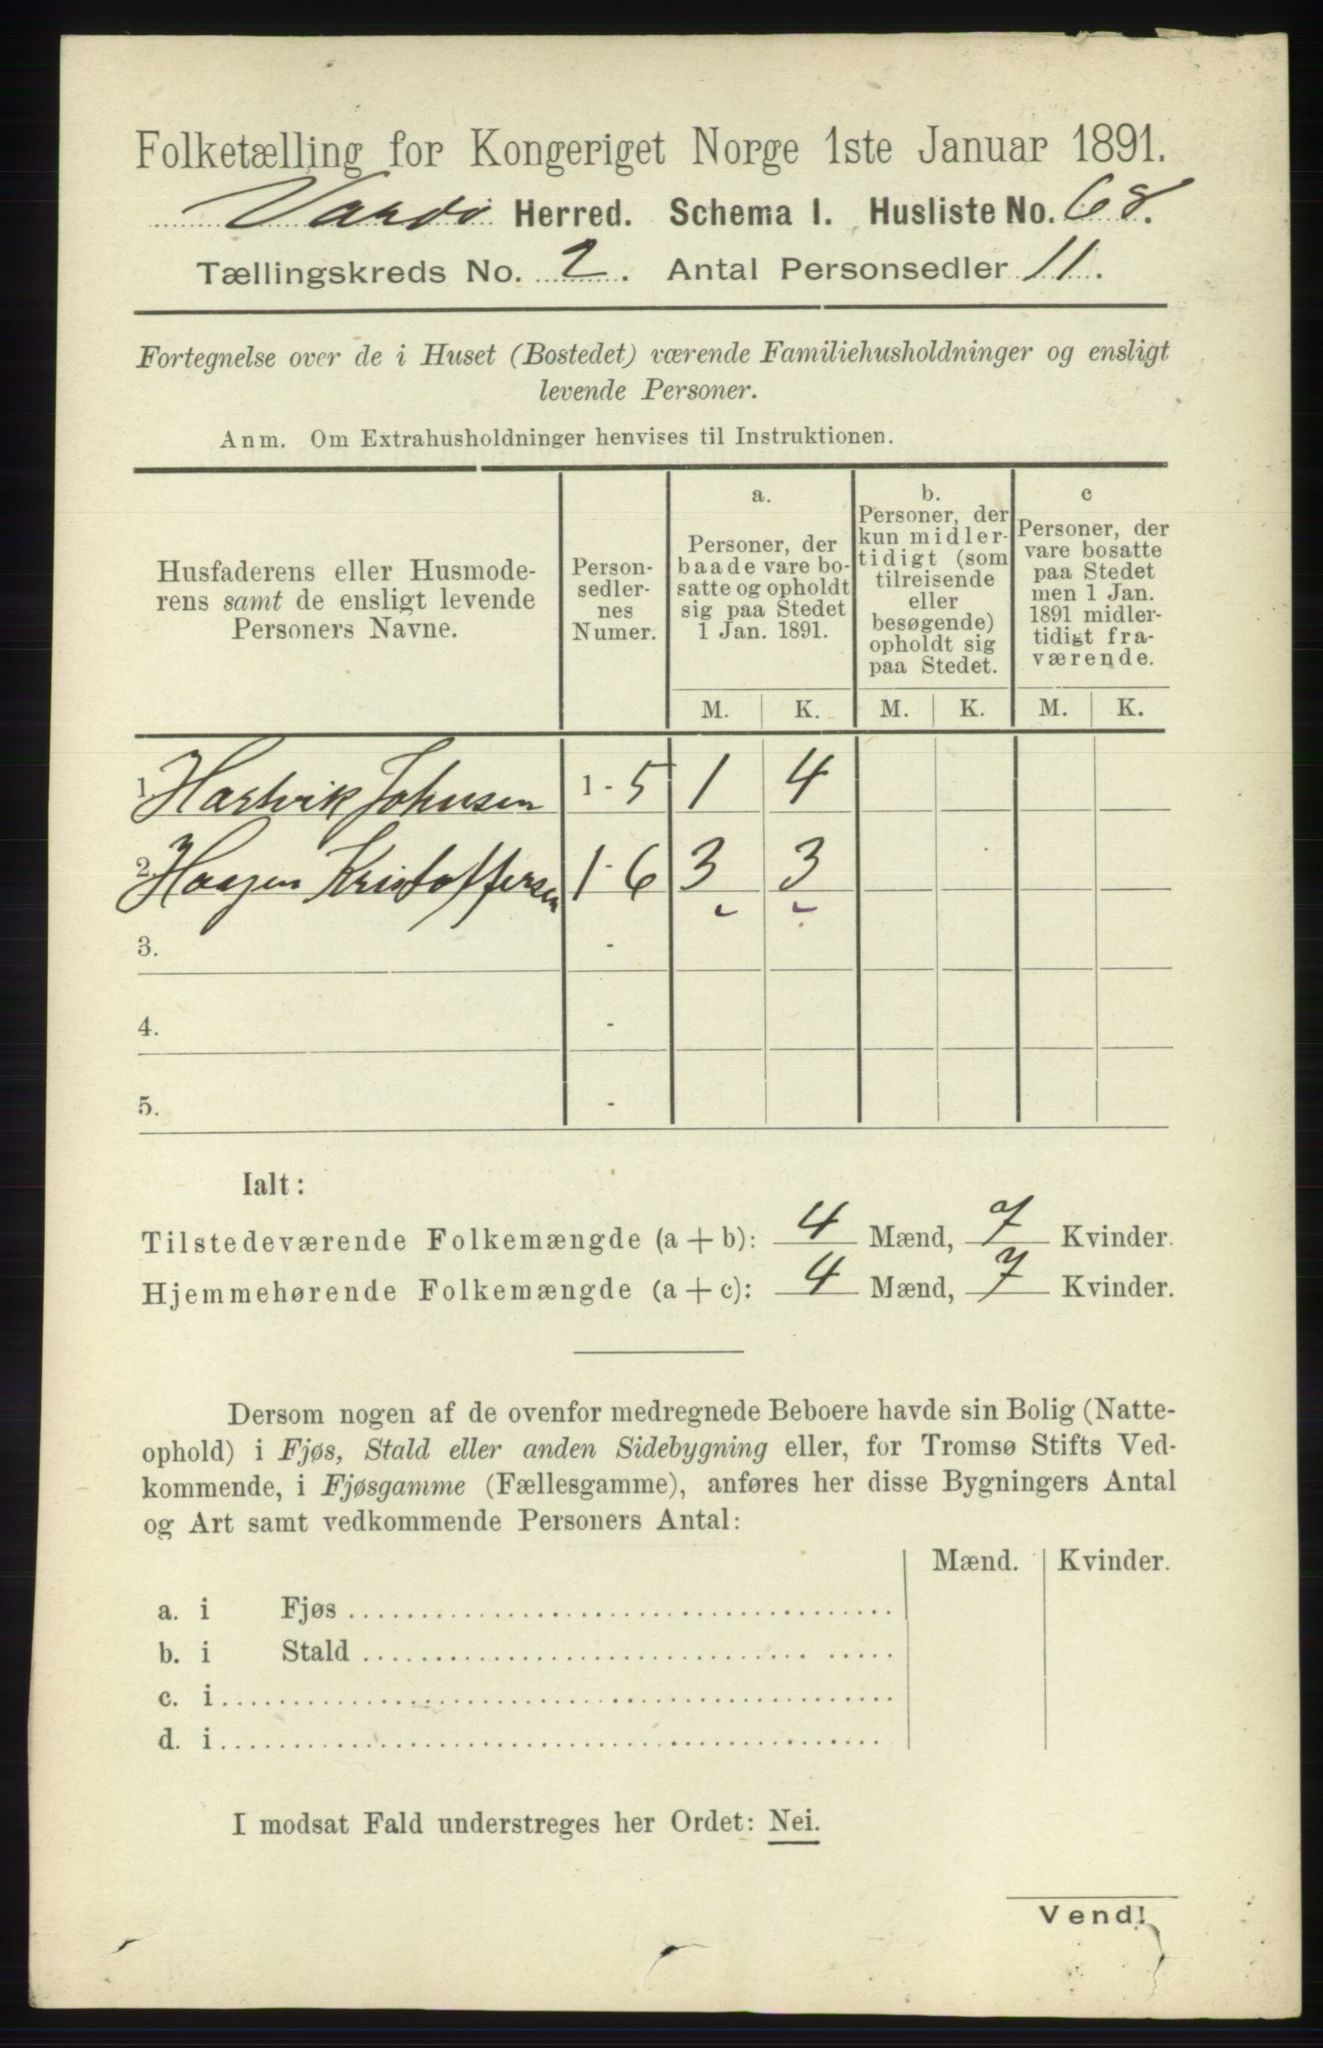 Folketælling for Kongeriget Norge 1ste Januar 1891.
Vardø Herred. Schema I. Husliste No. 68.
Tællingskreds No. 2. Antal Personsedler 11.
Fortegnelse over de i Huset (Bostedet) værende Familiehusholdninger og ensligt
levende Personer.
Anm. Om Extrahusholdninger henvises til Instruktionen.
Husfaderens eller Husmode-
rens samt de ensligt levende
Personers Navne.
Person-
sedler-
nes
Numer.
a.
Personer, der
baade vare bo-
satte og opholdt
sig paa Stedet
1 Jan. 1891.
b.
Personer, der
kun midler-
tidigt (som
tilreisende
eller
besøgende)
opholdt sig
paa Stedet.
c
Personer, der
vare bosatte
paa Stedet
men 1 Jan.
1891 midler-
tidigt fra-
værende.
M. K. M. K. M. K.
1. Hartvik Johnsen 1 - 5 1 4
2. Haagen Kristoffersen 1 - 6 3 3
3. -
4. -
5. -
Ialt:
Tilstedeværende Folkemængde (a + b): 4 Mænd, 7 Kvinder.
Hjemmehørende Folkemængde (a + c): 4 Mænd, 7 Kvinder.
Dersom nogen af de ovenfor medregnede Beboere havde sin Bolig (Natte-
ophold) i Fjøs, Stald eller anden Sidebygning eller, for Tromsø Stifts Ved-
kommende, i Fjøsgamme (Fællesgamme), anføres her disse Bygningers Antal
og Art samt vedkommende Personers Antal:
Mænd. Kvinder.
a. i Fjøs
b. i Stald
c. i
d. i
I modsat Fald understreges her Ordet: Nei.
Vend!